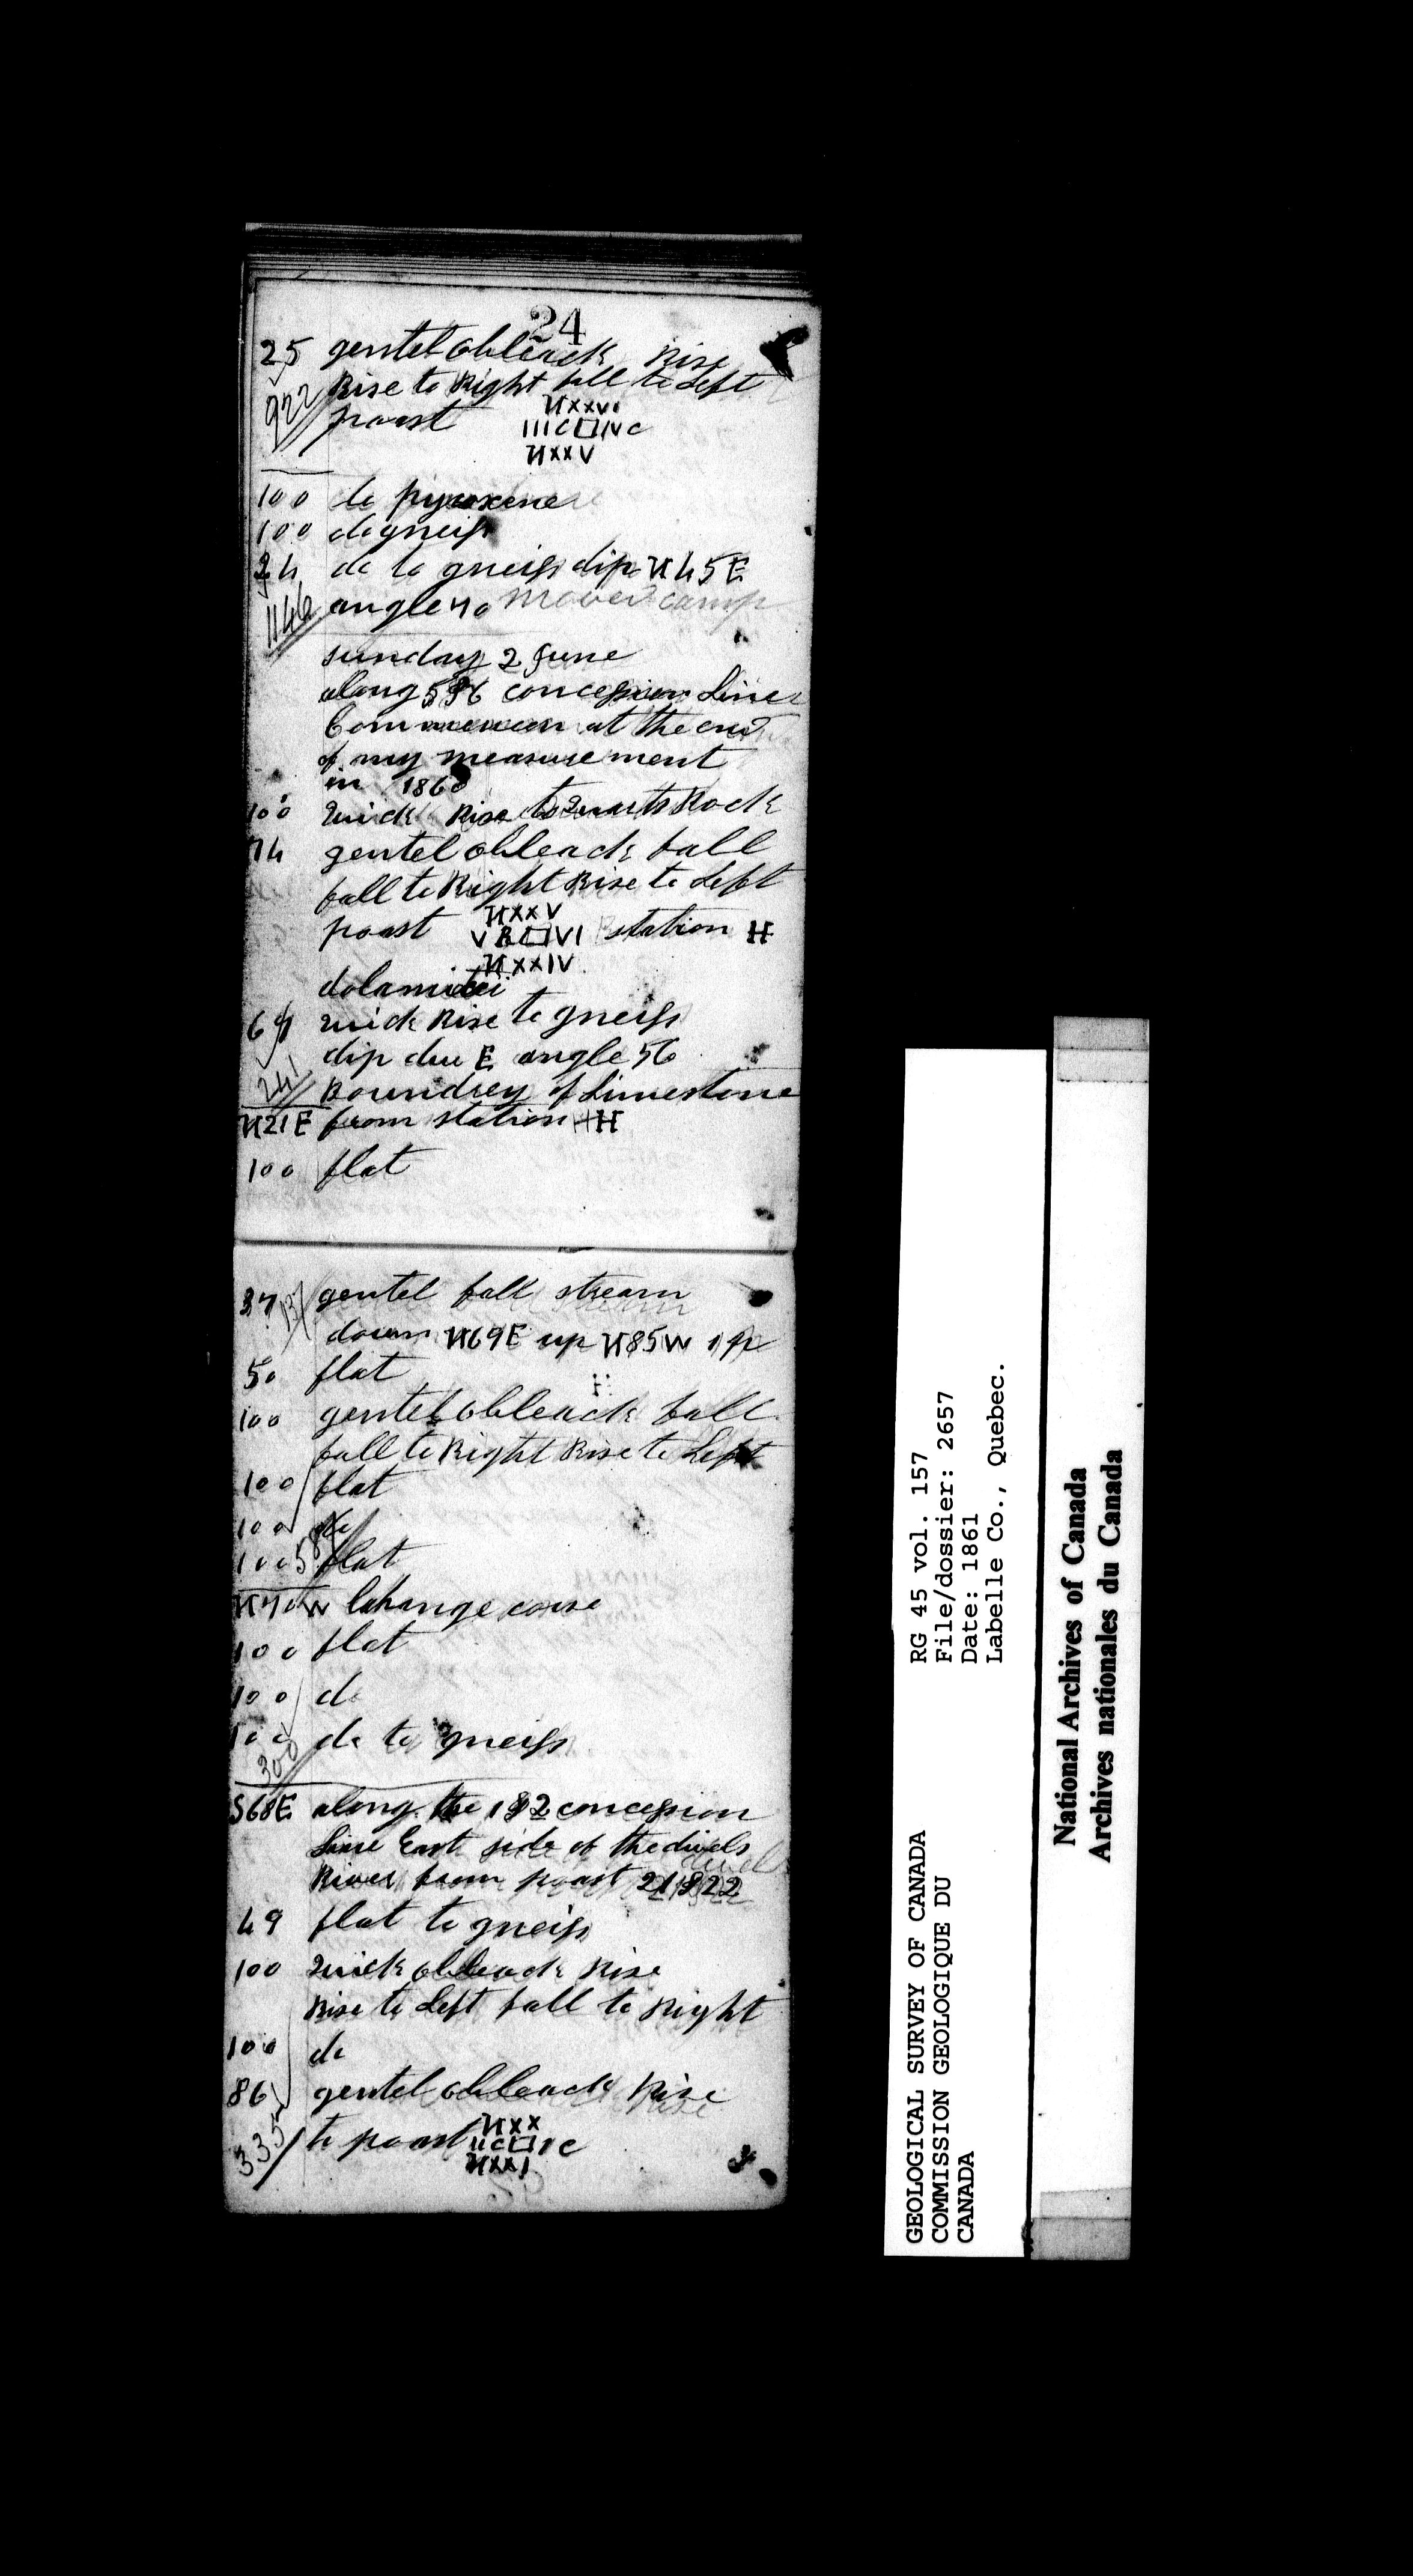 24
25 gentel obleack Rise
Rise to Right fall to Left
922 poast
NXXVI
IIIC□IVC
NXXV
100 to pyroxene
100 do gneiss
24 do to gneiss dip N45E
1146 angle 70 moved camp
sunday 2 June
along 5&6 concession Line
Commencen at the end
of my measurement
in 1860
100 Quick Rise to Quarts Rock
74 gentel obleack fall
fall to Right Rise to Left
NXXV
poast VR□VI station H
NXXIV
dolamitei
67 Quick Rise to gneiss
dip due E angle 56
241 Boundrey of Limestone
N21E from station H
100 flat
37 137 gentel fall stream
down N69E up N85W 1 p
50 flat
100 gentel obleack fall
fall to Right Rise to Left
100 flat
100 do
100 587 flat
N70W Change corse
100 flat
100 do
100 do to gneiss
300
S68E along the 1&2 concession
Line East side of the divels
River from poast 21&22
49 flat to gneiss
100 Quick obleack Rise
Rise to Left fall to Right
100 do
86 gentel obleack Rise
335 to poast
NXX
IIC□IC
NXXI
RG 45 vol. 157
File/dossier: 2657
Date: 1861
Labelle Co., Quebec.
GEOLOGICAL SURVEY OF CANADA
COMMISSION GEOLOGIQUE DU
CANADA
National Archives of Canada
Archives nationales du Canada